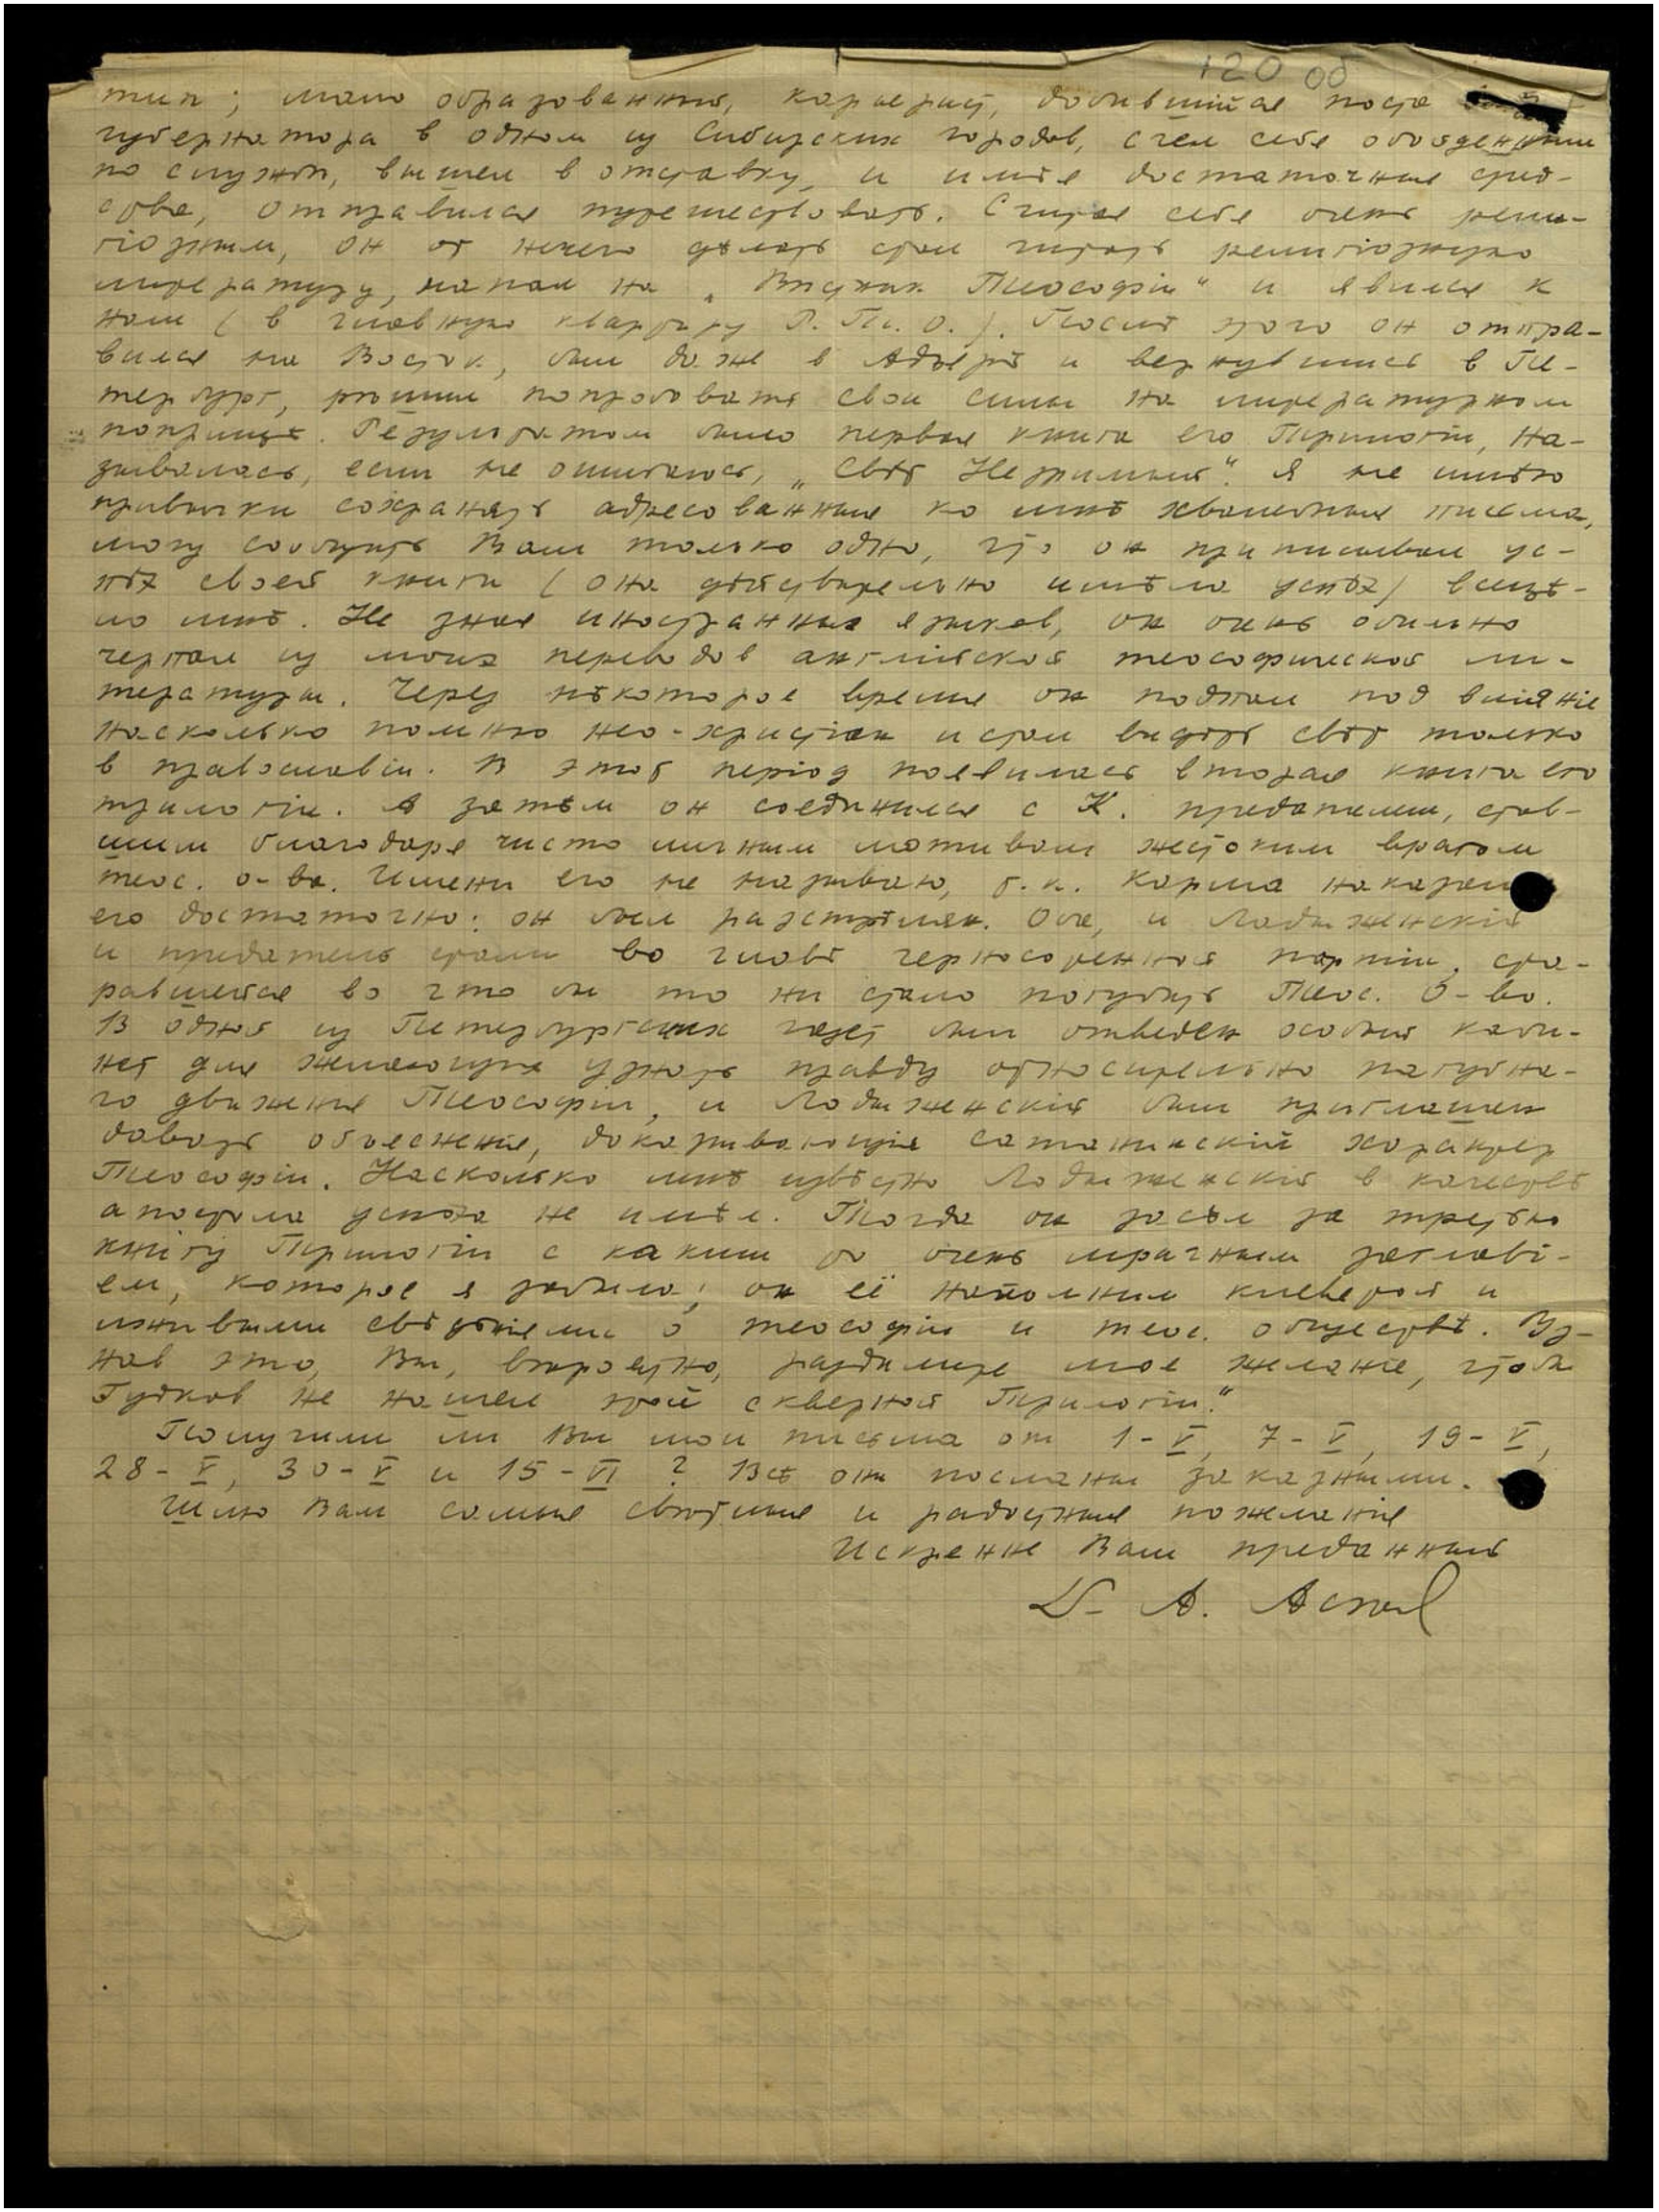 120 об
тип; мало образованный, карьерист, добившийся поста
губернатора в одном из Сибирских городов, счел себя обойденным
по службѣ, вышел в отставку, и имѣя достаточныя сред-
ства, отправился путешествовать. Считая себя очень рели-
гіозным, он от нечего дѣлать стал читать религіозную
литературу, напал на „Вѣстник Теософіи" и явился к
нам (в главную квартиру Р. Т. О.). Послѣ этого он отпра-
вился на Восток, был даже в Адьярѣ и вернувшись в Пе-
тербург, рѣшил попробовать свои силы на литературном
поприщѣ. Результатом была первая книга его Трилогіи, на-
зывалась, если не ошибаюсь, „Свѣт Незримый". Я не имѣю
привычки сохранять адресованныя ко мнѣ хвалебныя письма,
могу сообщить Вам только одно, что он приписывал ус-
пѣх своей книги (она дѣйствительно имѣла успѣх) всецѣ-
ло мнѣ. Не зная иностранных языков, он очень обильно
черпал из моих переводов англійской теософической ли-
тературы. Через нѣкоторое время он подпал под вліяніе
насколько помню нео-христіан и стал видѣть свѣт только
в православіи. В этот період появилась вторая книга его
трилогіи. А затѣм он соединился с К. предателем, став-
шим благодаря чисто личным мотивам жестоким врагом
теос. о-ва. Имени его не называю, т.к. Карма наказала
его достаточно: он был разстрѣлян. Оба, и Лодыженскій
и предатель стали во главѣ черносотенной партіи, ста-
равшейся во что бы то ни стало погубить Теос. О-во.
В одной из Петербургских газет был отведен особый каби-
нет для желающих узнать правду относительно пагубна-
го движенія Теософіи, и Лодыженскій был приглашен
давать объясненія, доказывающія сатанинскій характер
Теософіи. Насколько мнѣ извѣстно Лодыженскій в качествѣ
апостола успѣха не имѣл. Тогда он засѣл за третью
книгу Трилогіи с каким то очень мрачным заглаві-
ем, которое я забыла; он её наполнил клеветой и
лживыми свѣдѣніями о теософіи и теос. обществѣ. Уз-
нав это, Вы, вѣроятно, раздѣлите мое желаніе, чтобы
Гуйков не нашел этой скверной Трилогіи."
Получили ли Вы мои письма от 1-V, 7-V, 19-V,
28-V, 30-V и 15-VI? Всѣ они посланы заказными.
Шлю Вам самыя свѣтлыя и радостныя пожеланія
Искренне Вам преданный
D- А. Асѣев